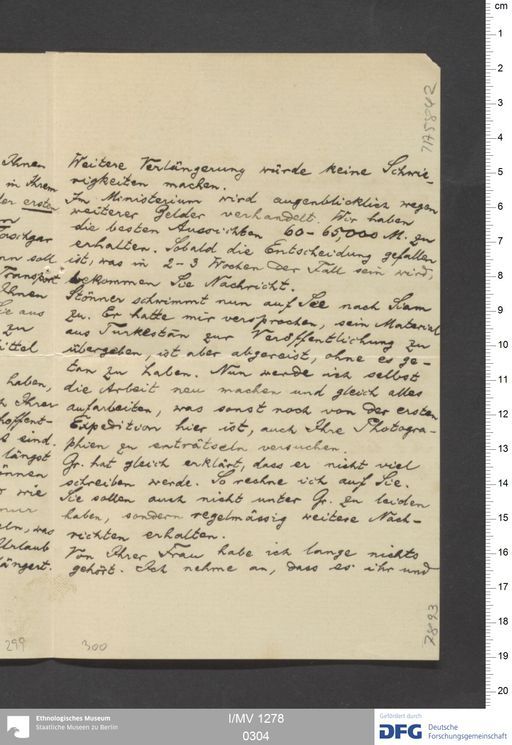 Ihnen
in Ihrem
der erste
Toschgar
nn soll
Transport
Ihnen
Sie aus
zu
ittel
haben,
ch Ihrer
hoffent-
s sind.
längst
önnen
wie
nur
eln, was
Urlaub
längert.
299
Weitere Verlängerung würde keine Schwie-
rigkeiten machen.
Im Ministerium wird augenblicklich wegen
weiterer Gelder verhandelt. Wir haben
die besten Aussichten 60-65,000 M. zu
erhalten. Sobald die Entscheidung gefallen
ist, was in 2-3 Wochen der Fall sein wird,
bekommen Sie Nachricht.
Stönner schwimmt nun auf See nach Siam
zu. Er hatte mir versprochen, sein Material
aus Turkestān zur Veröffentlichung zu
übergeben, ist aber abgereist, ohne es ge-
tan zu haben. Nun werde ich selbst
die Arbeit neu machen und gleich alles
aufarbeiten, was sonst noch von der ersten
Expedition hier ist, auch Ihre Photogra-
phien zu enträtseln versuchen.
Gr. hat gleich erklärt, dass er nicht viel
schreiben werde. So rechne ich auf Sie.
Sie sollen auch nicht unter Gr. zu leiden
haben, sondern regelmässig weitere Nach-
richten erhalten.
Von Ihrer Frau habe ich lange nichts
gehört. Ich nehme an, dass es ihr und
300
TA5842
7893
cm
1
2
3
4
5
6
7
8
9
10
11
12
13
14
15
16
17
18
19
20
Ethnologisches Museum
Staatliche Museen zu Berlin
I/MV 1278
0304
Gefördert durch
DFG Deutsche
Forschungsgemeinschaft